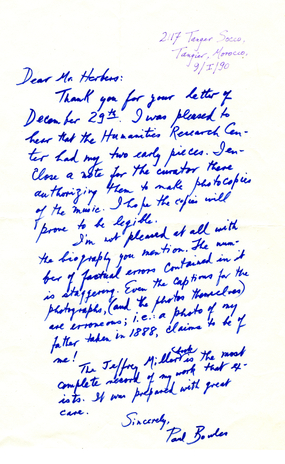 2117 Tanger Socco,
Tangier, Morocco.
9/I/90
Dear Mr. Herbers:
Thank you for your letter of
December 29th. I was pleased to
hear that the Humanities Research Cen-
ter had my two early pieces. I en-
close a note for the curator there
authorizing them to make photocopies
of the music. I hope the copies will
prove to be legible.
I'm not pleased at all with
the biography you mention. The num-
ber of factual errors contained in it
is staggering. Even the captions for the
photographs, (and the photos themselves)
are erroneous; i.e.: a photo of my
father taken in 1888, claims to be of
me!
The Jeffrey Miller book is the most
complete record of my work that ex-
ists. It was prepared with great
care.
Sincerely,
Paul Bowles